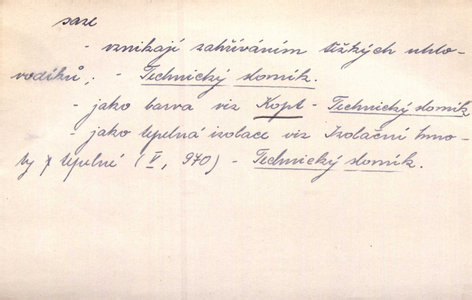 saze
- vznikají zahříváním těžkých uhlo-
vodíků; - Technický slovník.
- jako barva viz Kopt - Technický slovník
- jako tepelná izolace viz Izolační hmo-
ty tepelné (V, 970) - Technický slovník.